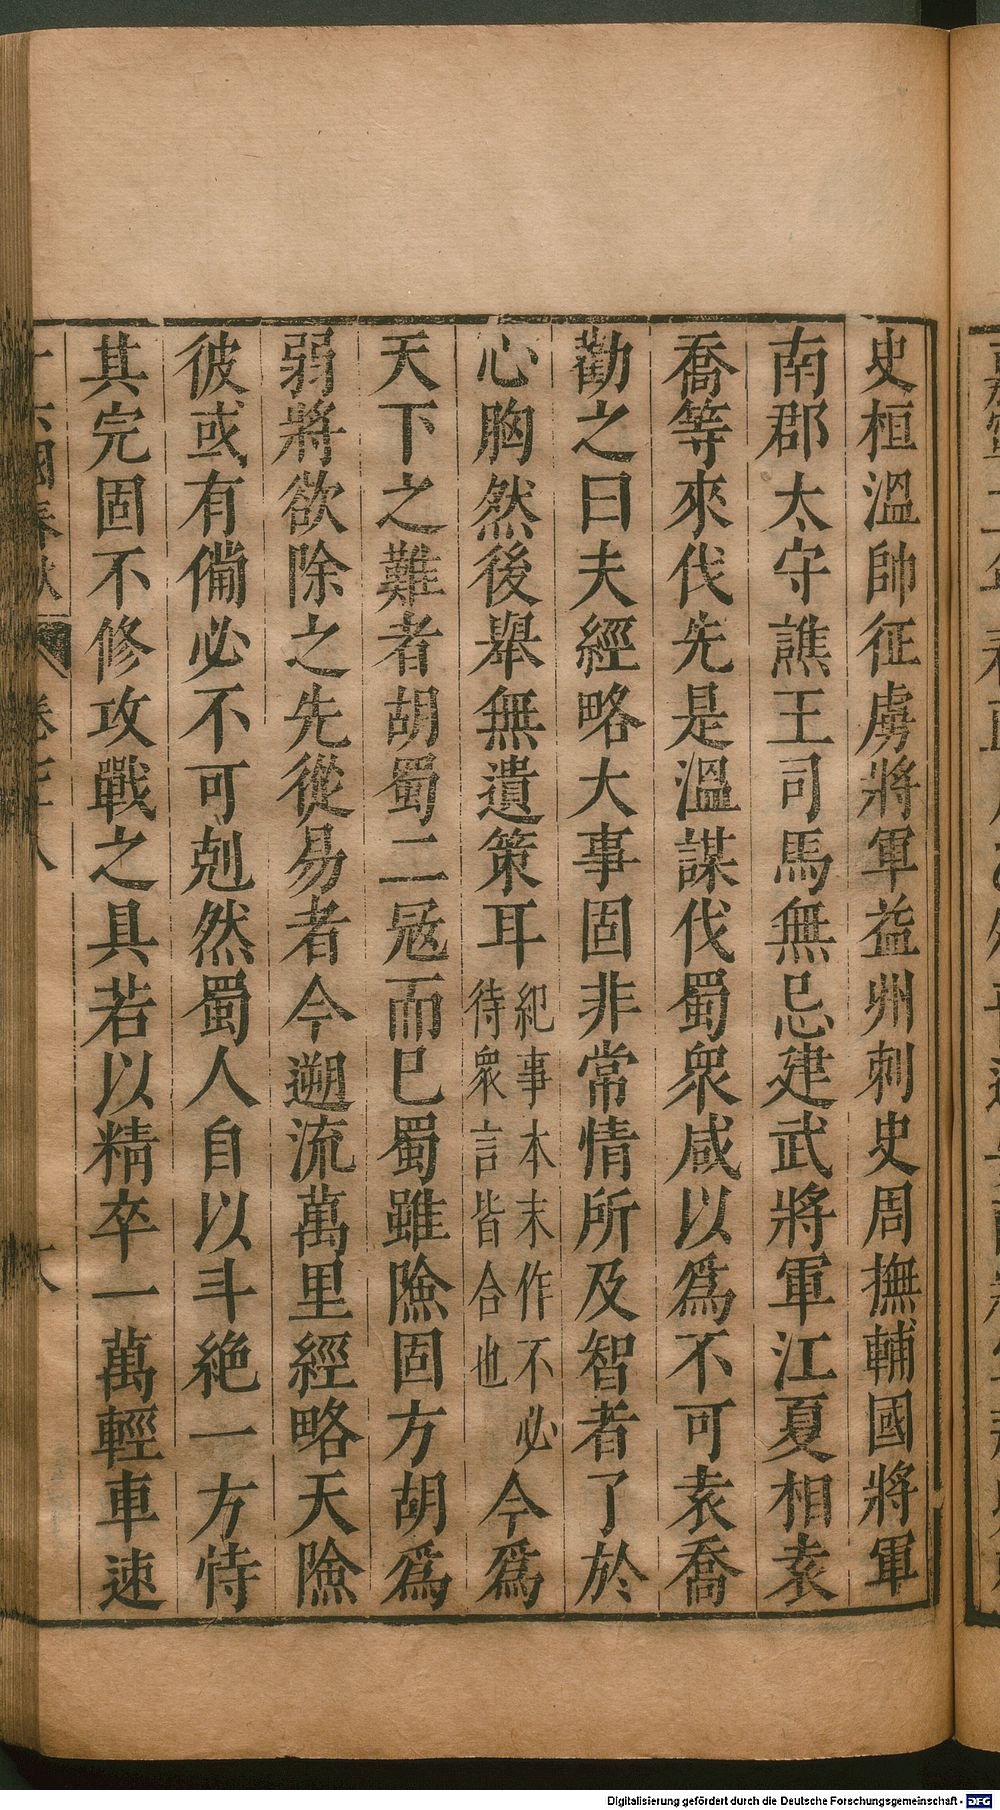 史桓溫帥征虜將軍益州刺史周撫輔國將軍
南郡太守譙王司馬無忌建武將軍江夏相袁
喬等來伐先是溫謀伐蜀衆咸以爲不可袁喬
勸之曰夫經略大事固非常情所及智者了於
心胸然後舉無遺策耳紀事本末作不必待衆言皆合也今爲
天下之難者胡蜀二寇而巳蜀雖險固方胡爲
弱將欲除之先從易者今遡流萬里經略天險
彼或有備必不可剋然蜀人自以斗絶一方恃
其完固不修攻戰之具若以精卒一萬輕車速
十六國春秋 卷七十八
Digitalisierung gefördert durch die Deutsche Forschungsgemeinschaft - DFG